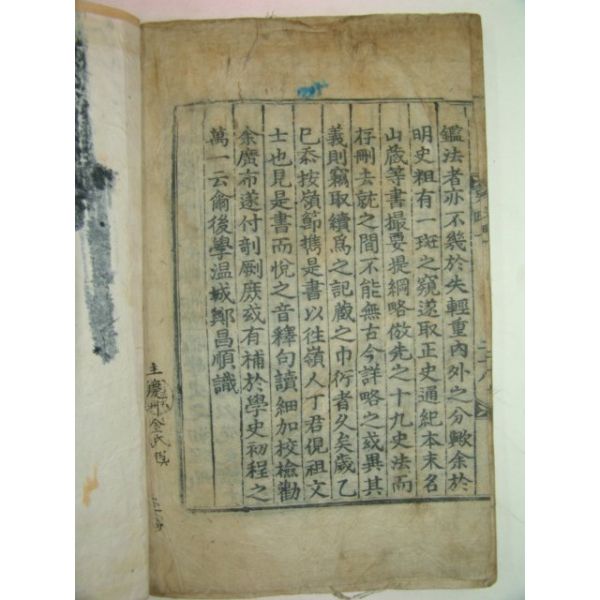 鑑法者亦不幾於失輕重內外之分歟余於
明史粗有一斑之窺遂取正史通紀本末名
山藏等書撮要提綱略倣先之十九史法而
存刪去就之間不能無古今詳略之或異其
義則竊取續爲之記藏之巾衍者久矣歲乙
巳忝按嶺節携是書以往嶺人丁君俔祖文
士也見是書而悅之音釋句讀細加校檢勸
余廣布遂付剞劂庶或有補於學史初程之
萬一云爾後學温城鄭昌順識
主慶州金氏